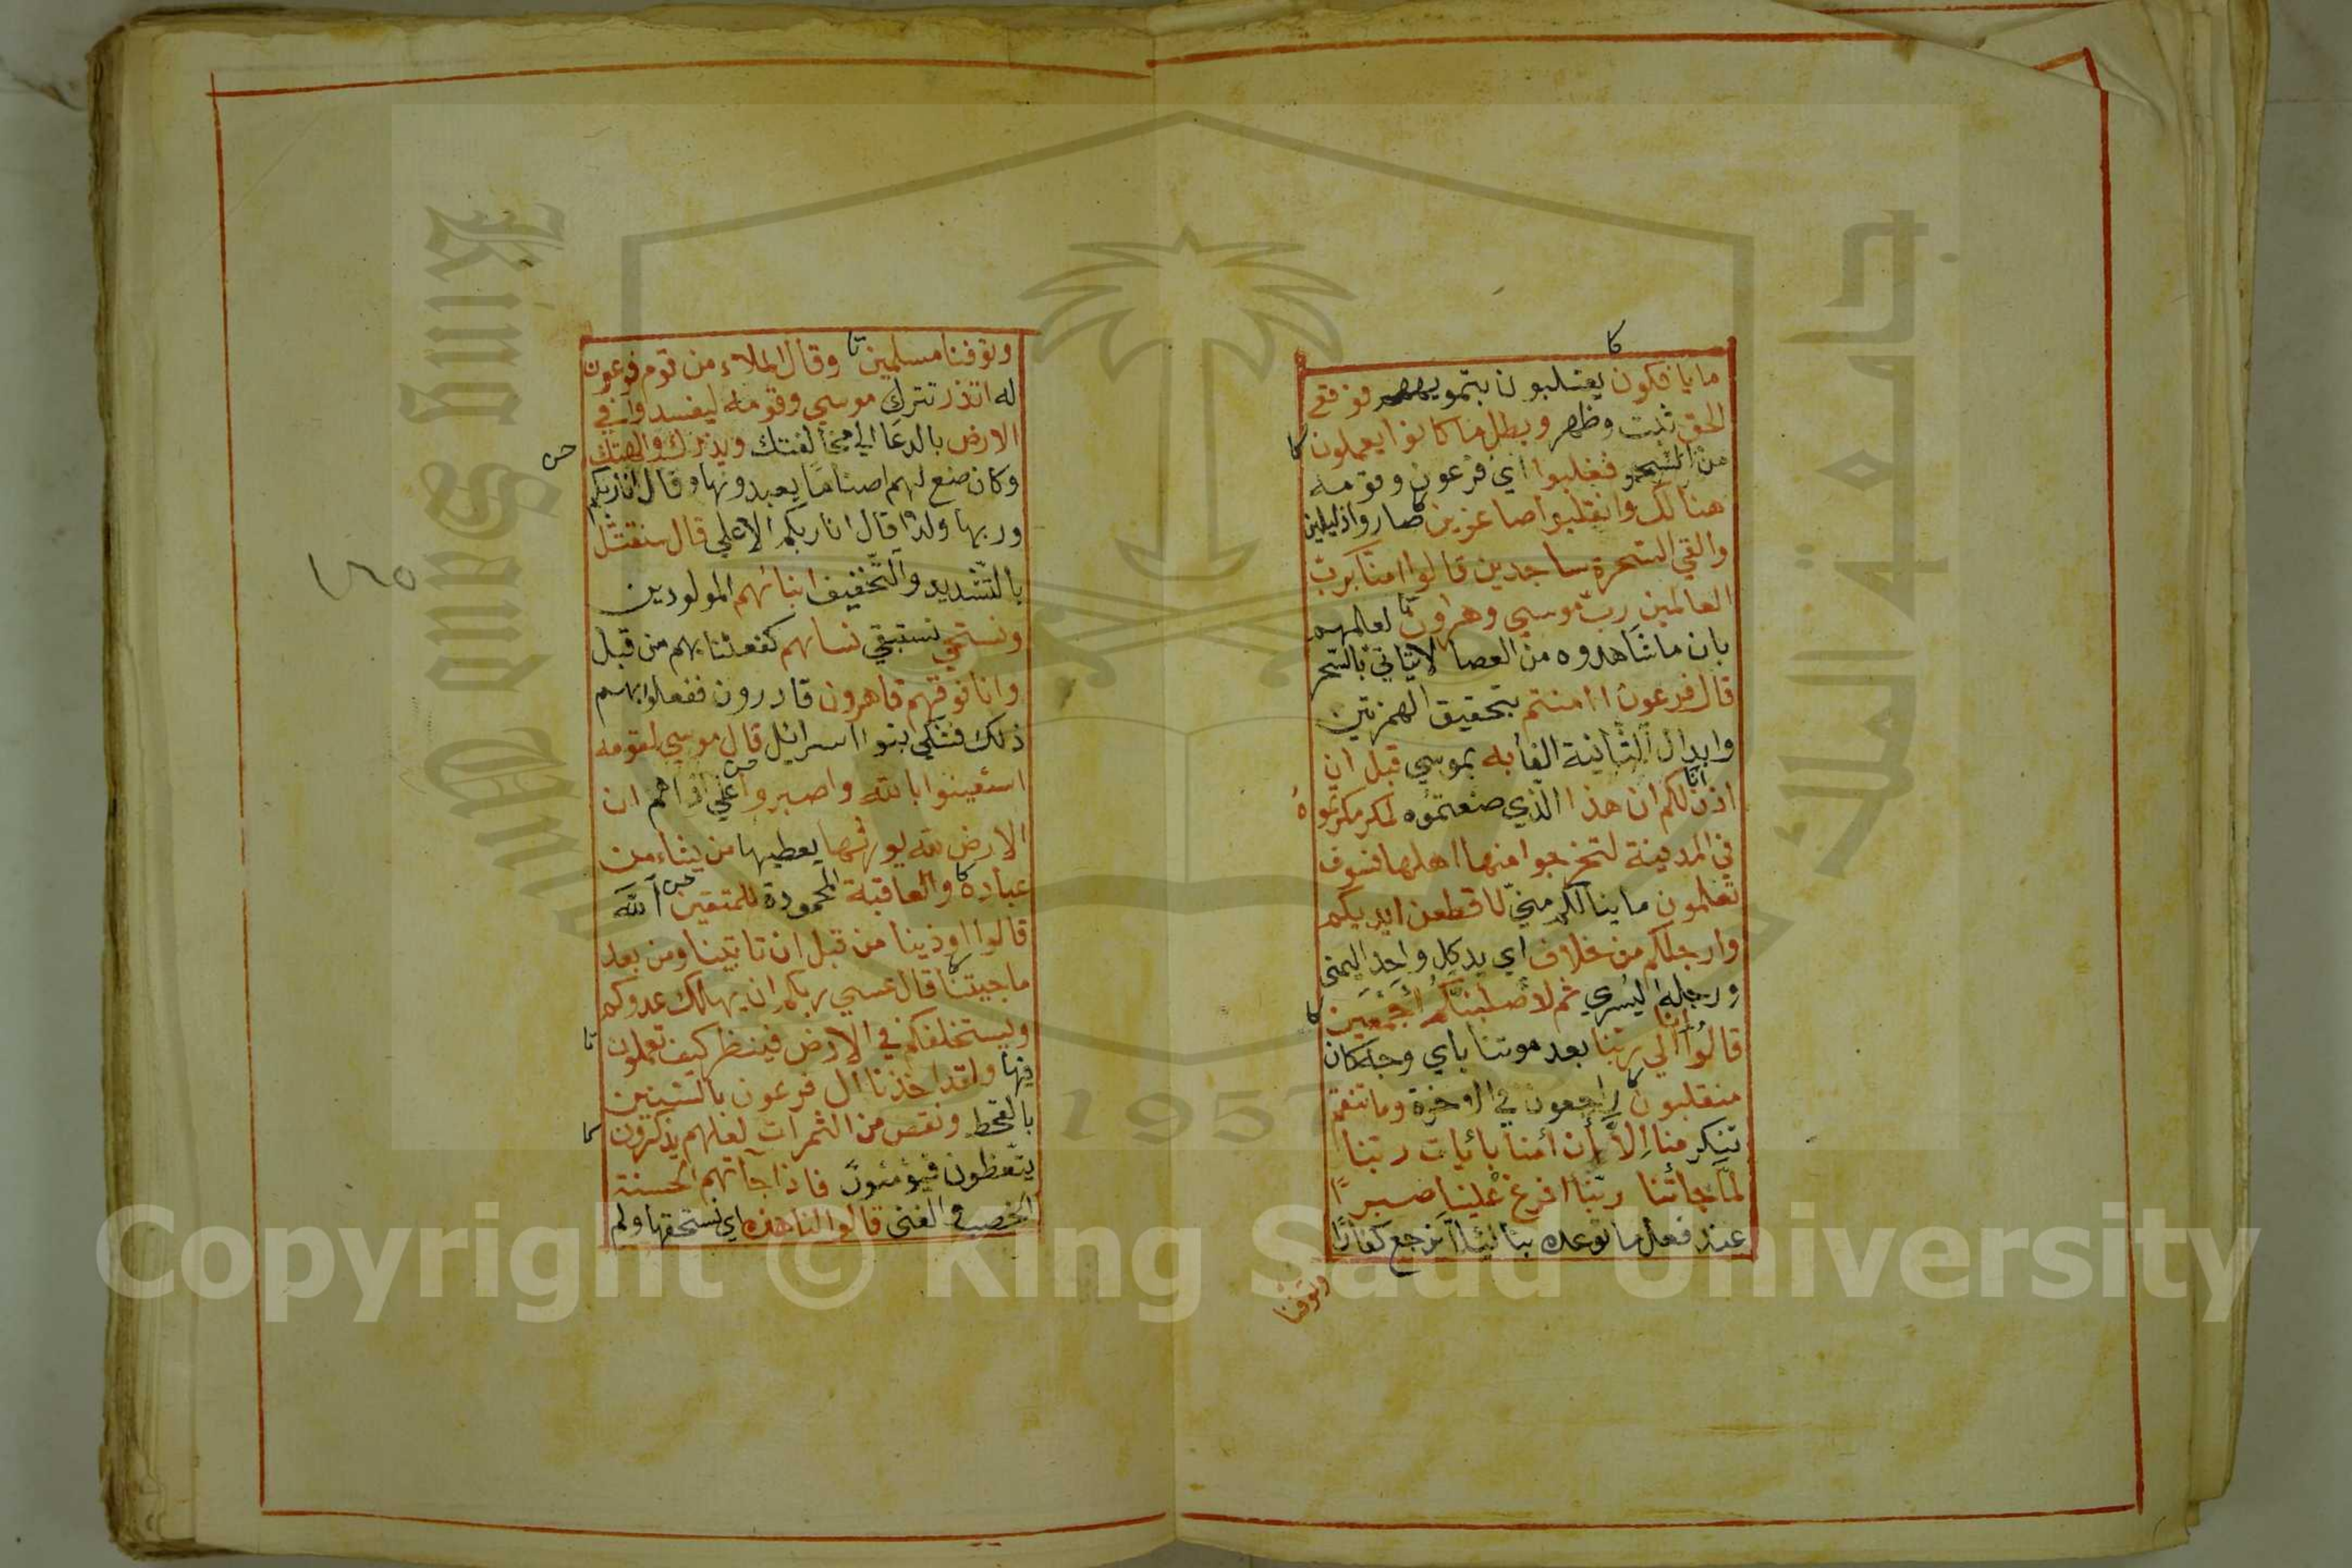 ما يافكون يقلبون بتمويههم فوقع
الحق ثبت وظهر وبطل ما كانوا يعملون
من السحر فغلبوا اي فرعون وقومه
هنالك وانقلبوا صاغرين صاروا ذليلين
والقي السحرة ساجدين قالوا امنا برب
العالمين رب موسي وهرون لعلمهم
بان ما شاهدوه من العصا لا يتاتي بالسحر
قال فرعون اامنتم بتحقيق الهمزتين
وابدال الثانية الفا به بموسي قبل ان
اذن انا لكم ان هذا الذي صنعتموه لمكر مكرتموه
في المدينة لتخرجوا منها اهلها فسوف
تعلمون ما ينالكم مني لاقطعن ايديكم
وارجلكم من خلاف اي يد كل واحد اليمني
ورجله اليسري ثم لاصلبنكم اجمعين
قالوا انا الي ربنا بعد موتنا باي وجه كان
منقلبون راجعون في الاخرة وما تنقم
تنكر منا الا ان امنا بايات ربنا
لما جاتنا ربنا افرغ علينا صبرا
عند فعل ما توعده بنا لئلا نرجع كفارا
وتوفنا
وتوفنا مسلمين وقال الملاء من قوم فرعون
له اتذر تترك موسي وقومه ليفسدوا في
الارض بالدعا الي مخالفتك ويذرك والهتك
وكان صنع لهم اصناما يعبدونها وقال انا ربكم
وربها ولذا قال انا ربكم الاعلي قال سنقتل
بالتشديد والتخفيف ابنائهم المولودين
ونستحي نستبقي نسائهم كفعلنا بهم من قبل
وانا فوقهم قاهرون قادرون ففعلوا بهم
ذلك فشكي بنوا اسرائل قال موسي لقومه
استعينوا بالله واصبروا علي اذاهم ان
الارض لله يورثها يعطيها من يشاء من
عباده والعاقبة المحمودة للمتقين الله
قالوا اوذينا من قبل ان تاتينا ومن بعد
ما جيتنا قال عسي ربكم ان يهلك عدوكم
ويستخلفكم في الارض فينظر كيف تعملون
فيها ولقد اخذنا ال فرعون بالسنين
بالقحط ونقص من الثمرات لعلهم يذكرون
يتعظون فيؤمنون فاذا جآتهم الحسنة
الخصب والغني قالوا لنا هذه اي نستحقها ولم
١٢٥
King Saud University
جامعة الملك
1957
Copyright © King Saud University